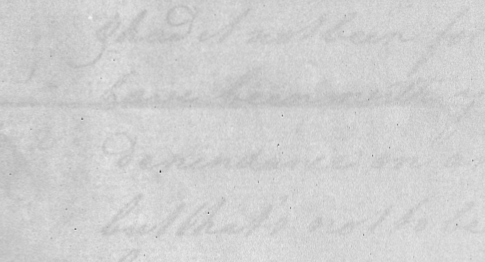 had it not been for
have been with y
dependance on a
but that's not to be